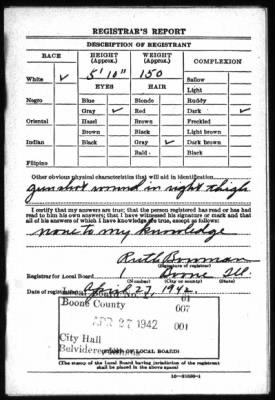 REGISTRAR'S REPORT
DESCRIPTION OF REGISTRANT
RACE HEIGHT (Approx.) WEIGHT (Approx.) COMPLEXION
White ✓ 5' 10" 150 Sallow
Light
EYES HAIR
Negro Blue Blonde Ruddy
Gray ✓ Red Dark ✓
Oriental Hazel Brown Freckled
Brown Black Light brown
Indian Black Gray ✓ Dark brown
Bald Black
Filipino
Other obvious physical characteristics that will aid in identification
gunshot wound in right thigh
I certify that my answers are true; that the person registered has read or has had
read to him his own answers; that I have witnessed his signature or mark and that
all of his answers of which I have knowledge are true, except as follows:
none to my knowledge
Ruth Bowman
(Signature of registrar)
Registrar for Local Board 1 Boone Ill.
(Number) (City or county) (State)
Date of registration April 27, 1942
Local Board No. 1 01
Boone County 007
APR 27 1942 001
City Hall
Belvidere, Illinois
(STAMP OF LOCAL BOARD)
(The stamp of the Local Board having jurisdiction of the registrant
shall be placed in the above space.)